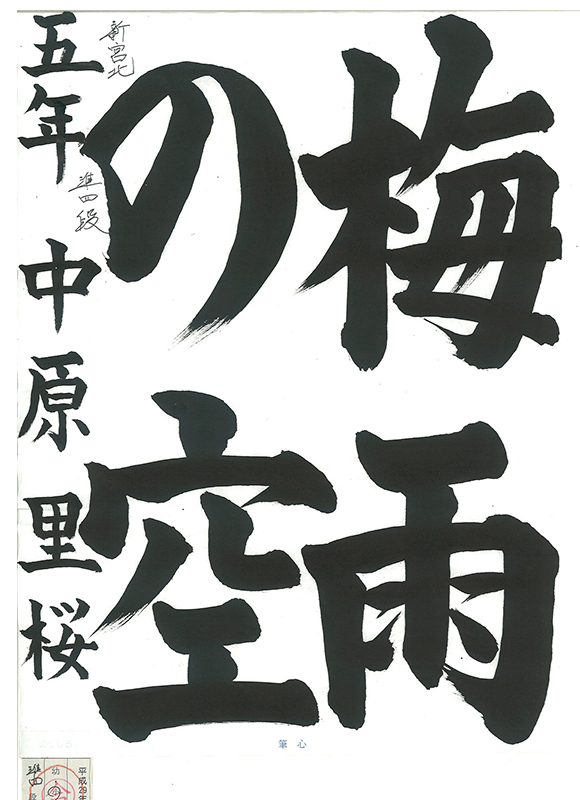 梅雨
の空
新宮北
準四段
五年 中原里桜
心筆
平成29年
幼
準四